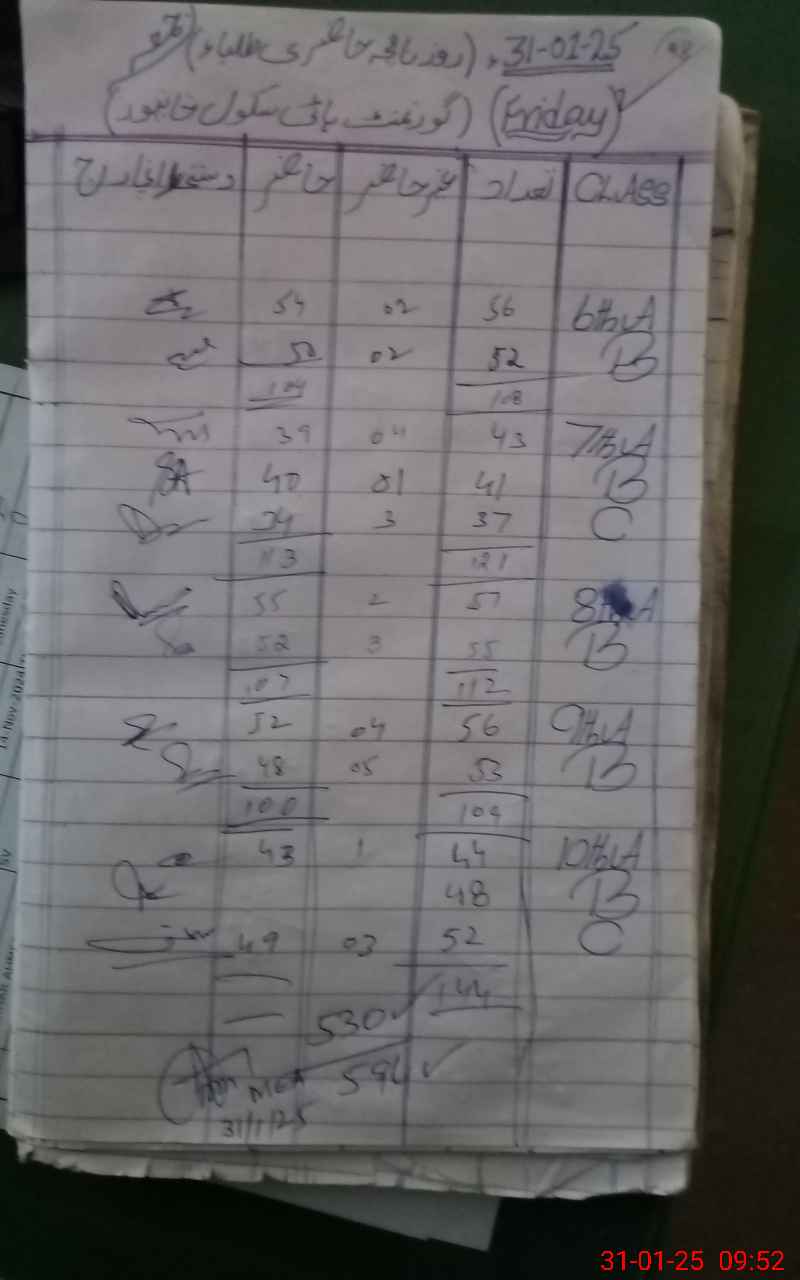 31-01-25 (روزنامہ حاضری طلباء)
(Friday) (گورنمنٹ ہائی سکول خانپور)
CLASS تعداد غیرحاضر حاضر دستخط انچارج
6th A 56 02 54
B 52 02 50
108 104
7th A 43 04 39
B 41 01 40
C 37 3 34
121 113
8th A 57 2 55
B 55 3 52
112 107
9th A 56 04 52
B 53 05 48
109 100
10th A 44 1 43
B 48
C 52 03 49
144
530
594
31/1/25
31-01-25 09:52